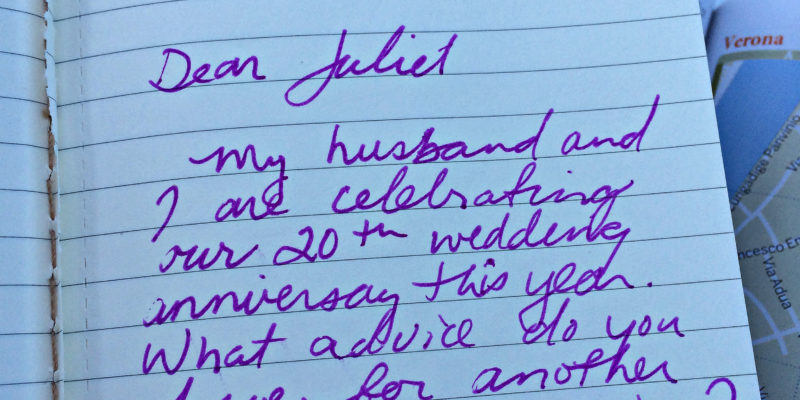 Dear Juliet
My husband and
I are celebrating
our 20th wedding
anniversay this year.
What advice do you
have for another
?
Verona
Lungadige Panvinio
ncesco En
Via Adua